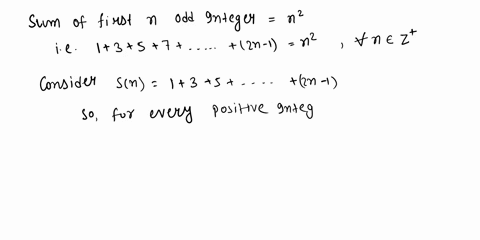 Sum of first n odd Integer = n²
i.e. 1+3+5+7+.....+(2n-1) = n² , ∀ n ∈ Z⁺
Consider S(n) = 1+3+5+....+(2n-1)
So, for every positive Integ